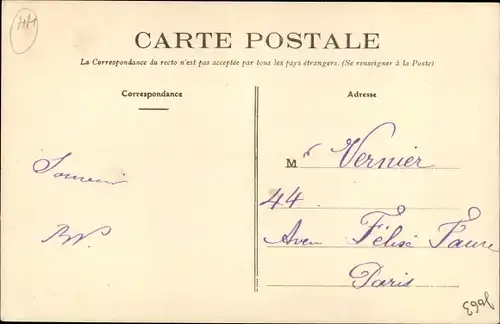 44
CARTE POSTALE
La Correspondance du recto n'est pas acceptée par tous les pays étrangers. (Se renseigner à la Poste)
Correspondance
Souvenir
Adresse
M r Vernier
44
Aven Félix Faure
Paris